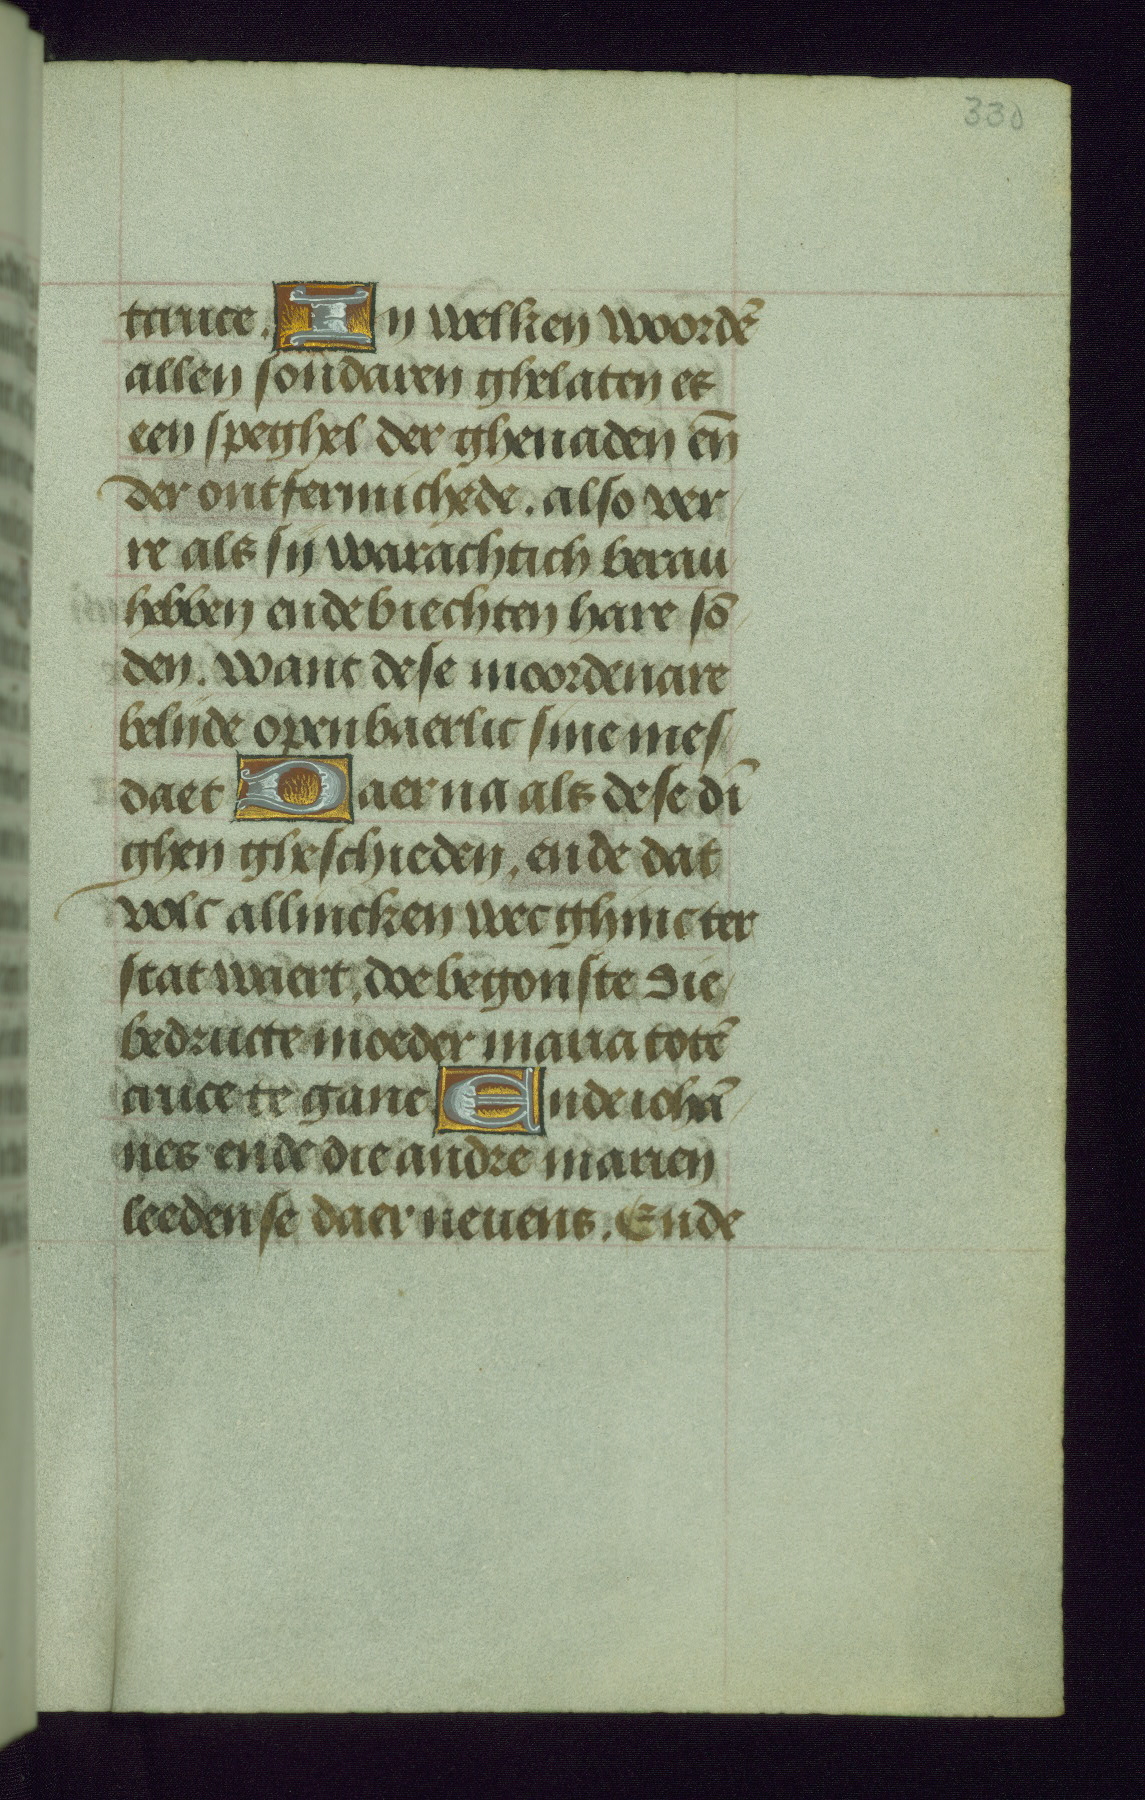 330
tcruce. In welken woordē
allen sondaren ghelaten es
een speghel der ghenaden en̄
der ontfermichede. also ver
re als sij warachtich berau
hebben ende biechten hare sō
den. want dese moordenare
belijde openbaerlic sine mes
daet Daer na als dese dī
ghen gheschieden, ende dat
volc allincken wec ghinc ter
stat waert, doe begonste die
bedructe moeder maria totē
cruce te gane Ende iohā
nes ende die andre marien
leedense daer neuens. Ende